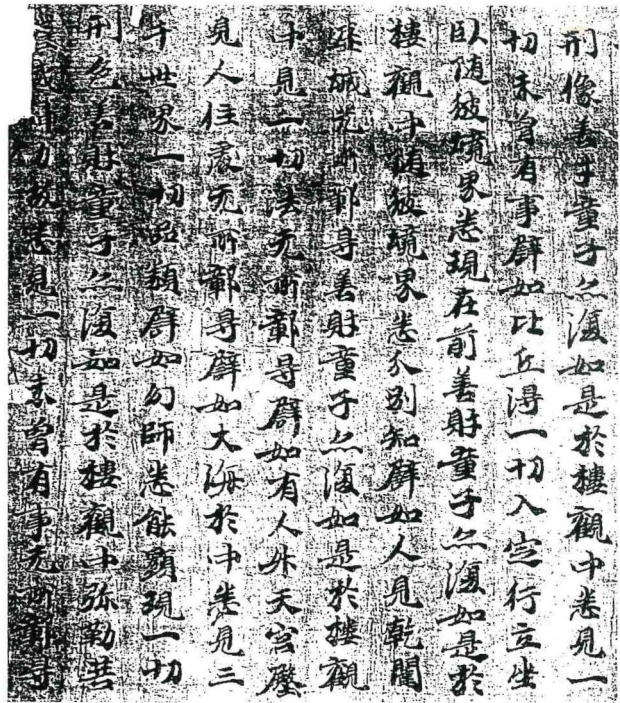 刑像善才童子亦復如是於樓觀中悉見一
切未曾有事辟如比丘得一切入定行立坐
臥隨彼境界悉現在前善財童子亦復如是於
樓觀中隨彼境界悉分別知辟如人見乾闥
婆城无所鄣㝵善財童子亦復如是於樓觀
中見一切法无所鄣㝵辟如有人升天宮殿
見人住處无所鄣㝵辟如大海於中悉見三
千世界一切品類辟如幻師悉能顯現一切
刑色善財童子亦復如是於樓觀中弥勒菩
威神力故悉見一切未曾有事无所鄣㝵